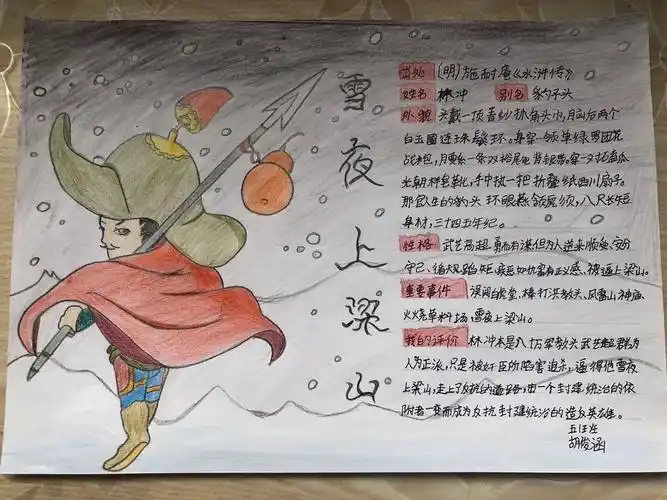 雪夜上梁山
出处 (明)施耐庵《水浒传》
姓名 林冲 别名 豹子头
外貌 头戴一顶青纱抓角头巾,脑后两个
白玉圈连珠鬓环。身穿一领单绿罗团花
战袍,腰系一条双
穿一对
朝样皂靴,手中执一把折叠纸西川扇子。
那官人生的豹头环眼燕颔虎须,八尺长短
身材,三十四五年纪。
性格 武艺高超,勇而有谋但为人逆来顺受、安分
守己、循规蹈矩,疾恶如仇富有正义感、被逼上梁山。
重要事件 误闯白虎堂、棒打洪教头、风雪山神庙、
火烧草料场、雪夜上梁山。
我的评价 林冲本是八十万军教头武艺超群为
人为正派,只是被奸臣所陷害追杀,逼得他雪夜
上梁山,走上了反抗的道路,由一个封建统治的依
附者一变而成为反抗封建统治的造反英雄。
胡俊涵